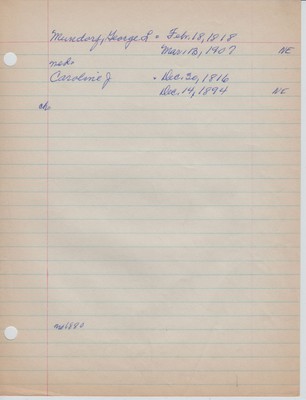 Mundorf, George L - Feb. 18, 1818
Mar. 13, 1907 NE
Caroline J - Dec. 30, 1816
Dec. 14, 1894 NE
ch